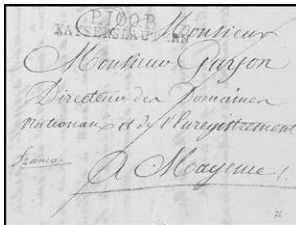 P.100.P.
KAISERSLAUTERN
Monsieur
Monsieur Garson
Directeur des Domaines
Nationaux et de l'Enregistrement
franco
A Mayence